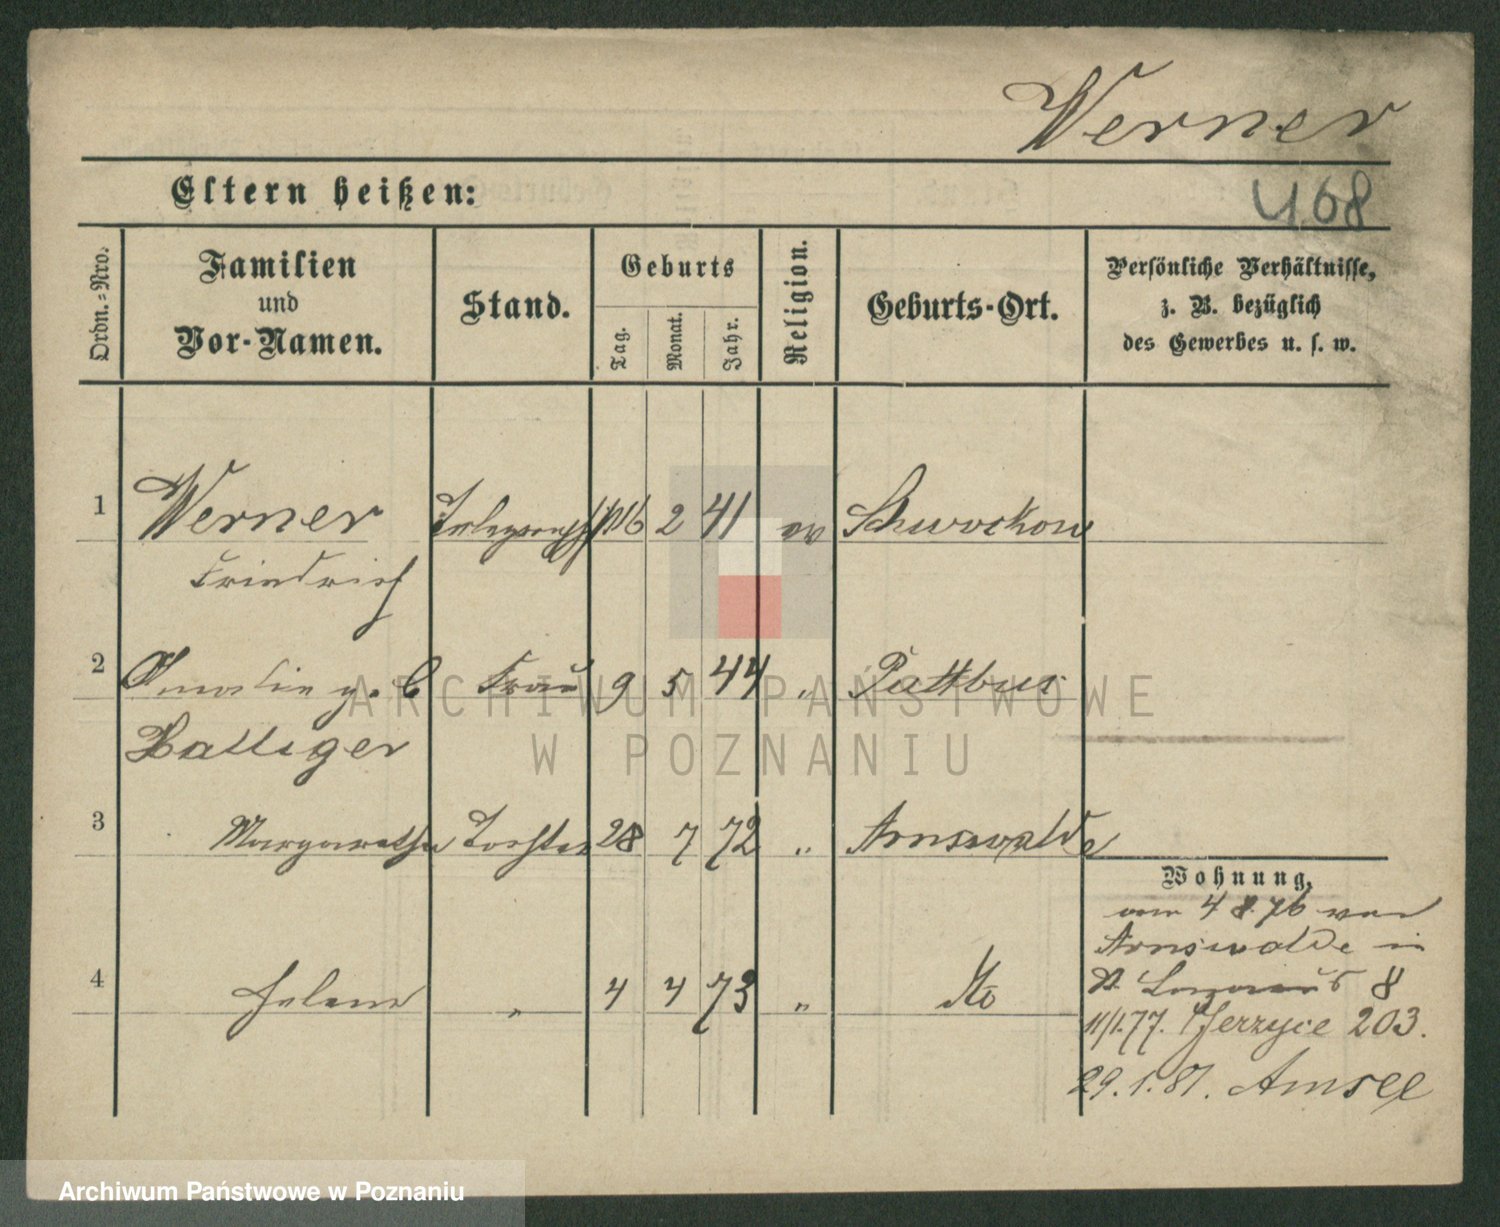 Werner
Eltern heißen:
468
Ordn.-Nro.
Familien
und
Vor-Namen.
Stand.
Geburts
Tag.
Monat.
Jahr.
Religion.
Geburts-Ort.
Persönliche Verhältnisse,
z. B. bezüglich
des Gewerbes u. s. w.
1 Werner Telegraphist 16 2 41 ev Schwochow
Friedrich
2 Amalie geb Frau 9 5 44 " Puttbus
Battiger
3 Margarethe Tochter 28 7 72 " Arnswalde
Wohnung.
4 8 76 von
Arnswalde in
8
4 Helene " 4 4 73 " dto
11/1.77. Jerzyce 203.
29.1.81. Amsee
ARCHIWUM PAŃSTWOWE
W POZNANIU
Archiwum Państwowe w Poznaniu